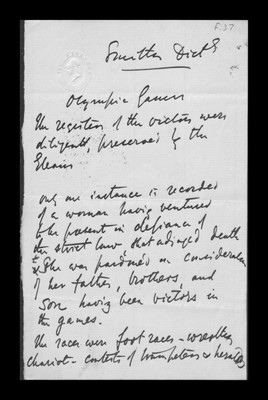 f. 37
Smith's Dict.
Olympic Games
The registers of the victors were
diligently preserved by the
Eleans
only one instance is recorded
of a woman having ventured
to be present in defiance of
the strict law that adjudged death
She was pardoned in consideration
of her father, brothers, and
son having been victors in
the games.
The races were foot races - wrestling
chariot - contests of trumpeters & heralds